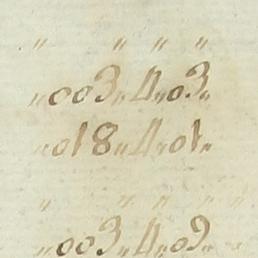 " " " "
"003"4"03"
"018"4"01"
" " " " "
"003"4"09"